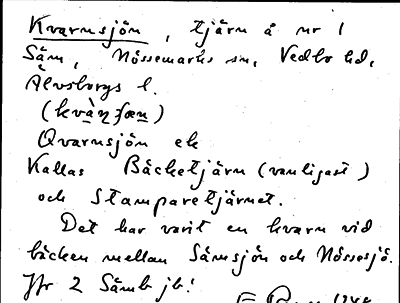 Kvarnsjön, tjärn å nr 1
Säm, Nössemarks sn, Vedbo hd,
Älvsborgs l.
(kvà̠ɳʃæn)
Qvarnsjön ek
Kallas Bäcketjärn (vanligast)
och Stamparetjärnet.
Det har varit en kvarn vid
bäcken mellan Sämsjön och Nössesjö.
Jfr 2 Sämb jb!